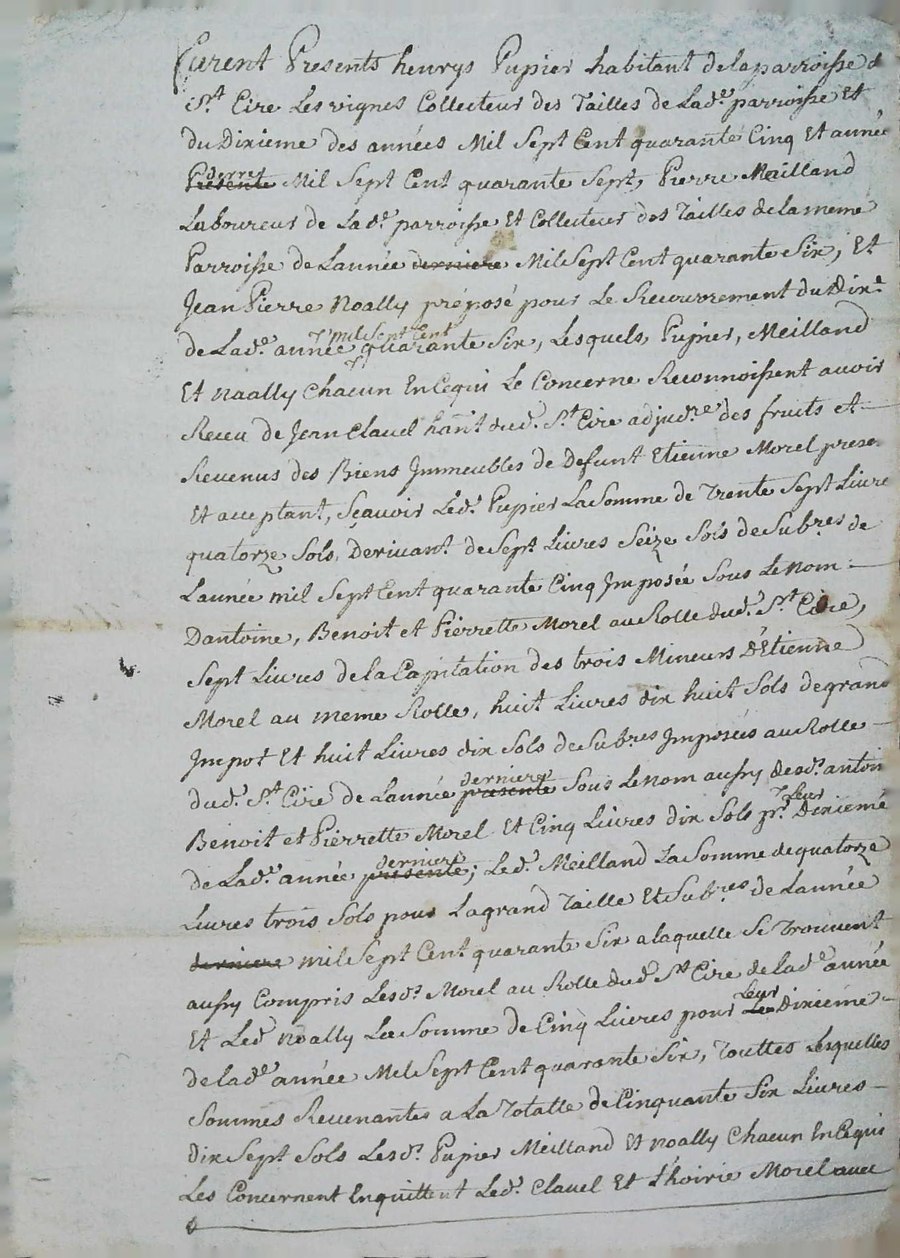 furent Presents henrys Pupier habitant de la parroisse d
St. Cire Les vignes Collecteur des Tailles de Lade. parroisse Et
du Dixieme des années Mil Sept Cent quarante Cinq Et année
derre
Presente Mil Sept Cent quarante Sept, Pierre Meilland
Laboureur de Lade. parroisse Et Collecteur des Tailles de la meme
Parroisse de Lannée derniere Mil Sept Cent quarante Six, Et
Jean Pierre Noally préposé pour Le Recouvrement du Dixe.
mil Sept Cent
de Lade. année quarante Six, Lesquels, Pupier, Meilland
Et Noally Chacun En Cequi Le Concerne Reconnoissent avoir
Receu de Jean Clavel hant. dud. St. Cire adjudre. des fruits et
Revenus des Biens Immeubles de Defunt Etienne Morel presen
Et acceptant, Sçavoir Led. Pupier La Somme de Trente Sept Livre
quatorze Sols, Derivant de Sept Livres Seize Sols de Subres de
Lannée mil Sept Cent quarante Cinq Imposée Sous Le nom
Dantoine, Benoit et Pierrette Morel au Rolle dud. St. Cire,
Sept Livres de la Capitation des trois Mineurs d'Etienne
Morel au meme Rolle, huit Livres dix huit Sols de grand
Impot Et huit Livres dix Sols de Subres Imposées au Rolle
dud. St. Cire de Lannée presente Sous Le nom aussy desd. antoin
derniere
Benoit et Pierrette Morel Et Cinq Livres dix Sols pr. Dixiéme
Leur
de Lade. année presente; Led. Meilland La Somme de quatorze
derniere
Livres trois Sols pour La grand Taille Et Subres de Lannée
derniere mil Sept Cent quarante Six a laquelle Se Trouvent
aussy Compris Lesd. Morel au Rolle dud. St. Cire de lade. année
Et Led. Noally La Somme de Cinq Livres pour Le Dixieme
Leur
de lade. année Mil Sept Cent quarante Six, Touttes Lesquelles
Sommes Revenantes a La Totalle de Cinquante Six Livres
dix Sept Sols Lesd. Pupier Meilland Et Noally Chacun En Cequi
Les Concernent Enquittent Led. Clavel Et L'hoirie Morel avec